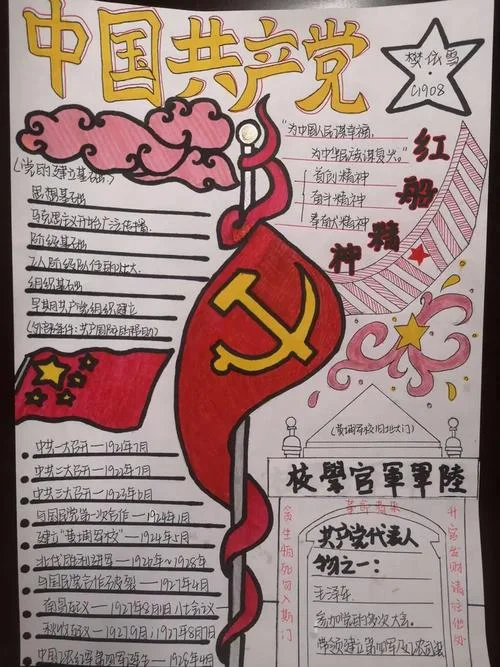 中国共产党
樊依雪
C1908
(党的建立基础:)
思想基础
马克思主义开始广泛传播.
阶级基础
工人阶级队伍的壮大.
组织基础
早期共产党组织建立
(外部条件:共产国际的帮助)
"为中国人民谋幸福,
为中华民族谋复兴。"
首创精神
奋斗精神
奉献精神
红船精神
中共一大召开—1921年7月
中共二大召开—1922年7月
中共三大召开—1923年6月
与国民党第一次合作—1924年1月
建立"黄埔军校"—1924年5月
北伐胜利进军—1926年~1928年
与国民党合作破裂—1927年4月
南昌起义—1927年8月1日
秋收起义—1927年9月;1927年8月7日
(黄埔军校旧址大门)
校學官軍軍陸
革命者来
贪生怕死勿入斯门
升官发财请往他处
共产党代表人
物之一:
毛泽东
参加党的多次大会.